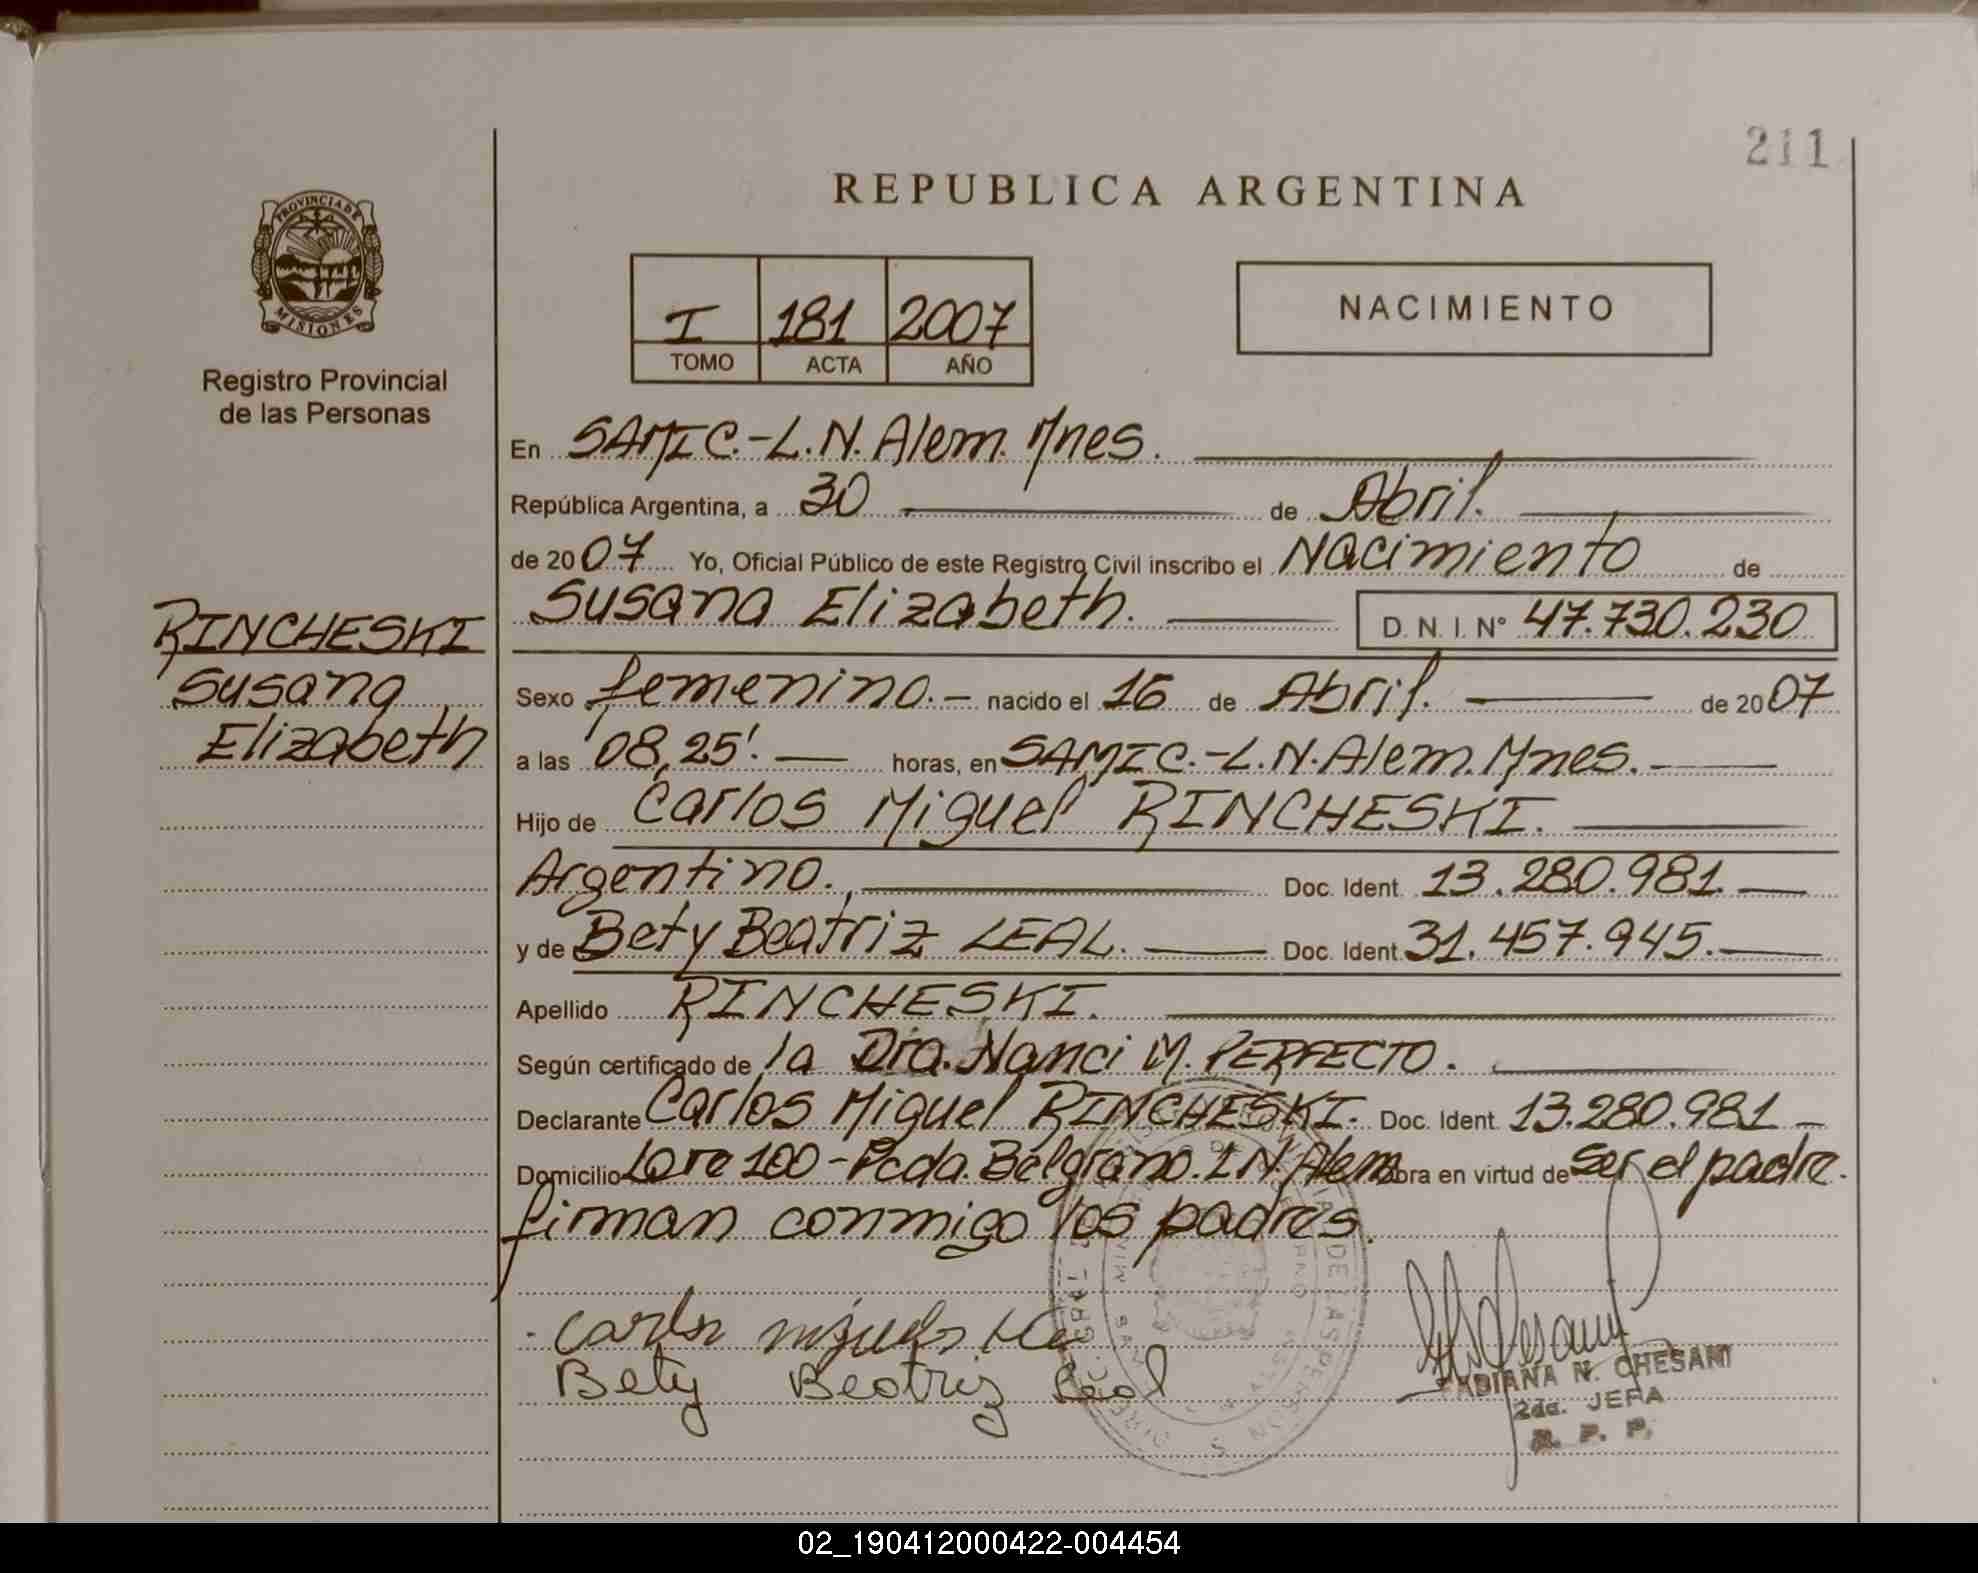 211
REPUBLICA ARGENTINA
PROVINCIA DE
MISIONES
Registro Provincial
de las Personas
I 181 2007
TOMO ACTA AÑO
NACIMIENTO
En SAMIC.-L.N.Alem.Mnes.
República Argentina, a 30 de Abril.
de 2007 Yo, Oficial Público de este Registro Civil inscribo el Nacimiento de
Susana Elizabeth. D. N. I. N° 47.730.230
RINCHESKI
Susana
Elizabeth
Sexo femenino.- nacido el 16 de Abril. de 2007
a las 08,25'. horas, en SAMIC.-L.N.Alem.Mnes.-
Hijo de Carlos Miguel RINCHESKI.
Argentino. Doc. Ident. 13.280.981.
y de Bety Beatriz LEAL. Doc. Ident. 31.457.945.
Apellido RINCHESKI.
Según certificado de la Dra. Nanci M. PERFECTO.
Declarante Carlos Miguel RINCHESKI. Doc. Ident. 13.280.981
Domicilio Lote 100-Pcda. Belgrano. L.N.Alem obra en virtud de ser el padre.
firman conmigo los padres.
Bety Beatriz Leal
FABIANA N. CHESANI
2da. JEFA
R. P. P.
02_190412000422-004454